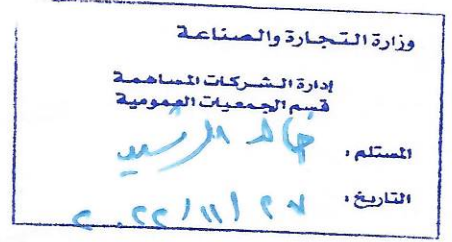 وزارة التجارة والصناعة
إدارة الشركات المساهمة
قسم الجمعيات العمومية
المستلم: خالد الرشيد
التاريخ: ٢٧/١١/٢٠٢٢